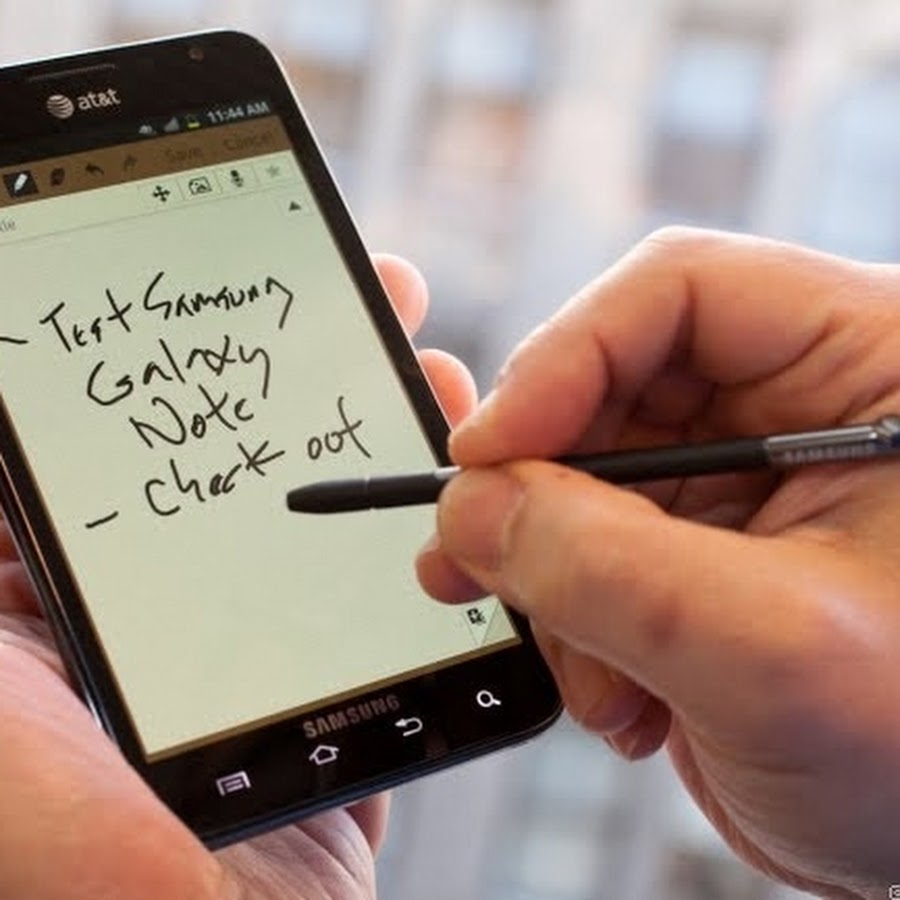 at&t
11:44 AM
Save Cancel
- Test Samsung
Galaxy
Note
- Check out
SAMSUNG
SAMSUNG